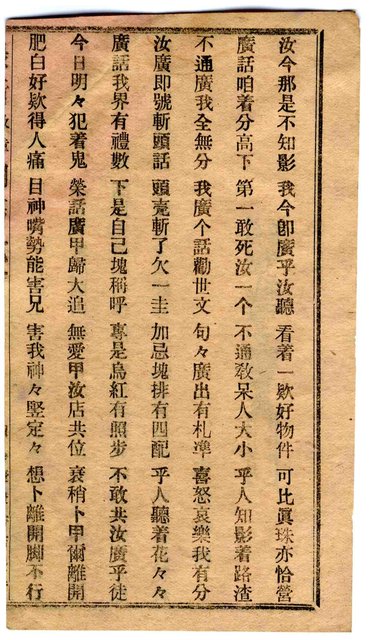 汝今那是不知影 我今卽廣乎汝聽 看着一欵好物件 可比眞珠亦恰營
廣話咱着分高下 第一敢死汝一个 不通敎呆人大小 乎人知影着路渣
不通廣我全無分 我廣个話勸世文 句々廣出有札凖 喜怒哀樂我有分
汝廣卽號斬頭話 頭壳斬了欠一圭 加忌塊排有四配 乎人聽着花々々
廣話我界有禮數 下是自己塊稱呼 專是烏紅有照步 不敢共汝廣乎徒
今日明々犯着鬼 榮話廣甲歸大追 無愛甲汝店共位 衰稍卜甲爾離開
肥白好欵得人痛 目神嘴勢能害兄 害我神々竪定々 想卜離開脚不行